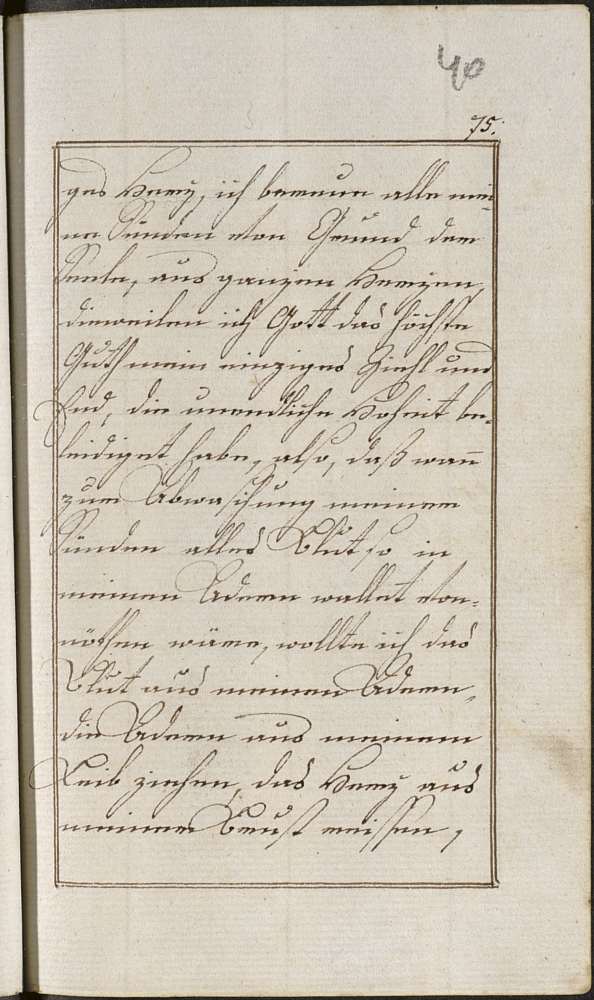 40
75.
ges Herz, ich bereue alle mei-
ne Sünden von Grund der
Seele, aus ganzen Herzen,
dieweilen ich Gott das höchste
Guth mein einziges Ziehl und
End, die unendliche Hoheit be-
leidiget habe, also, daß wan̄
zur Abwaschung meiner
Sünden alles Blut so in
meinen Adern wallet von-
nöthen wäre, wollte ich das
Blut aus meinen Adern,
die Adern aus meinem
Leib ziehen, das Herz aus
meiner Brust reissen,